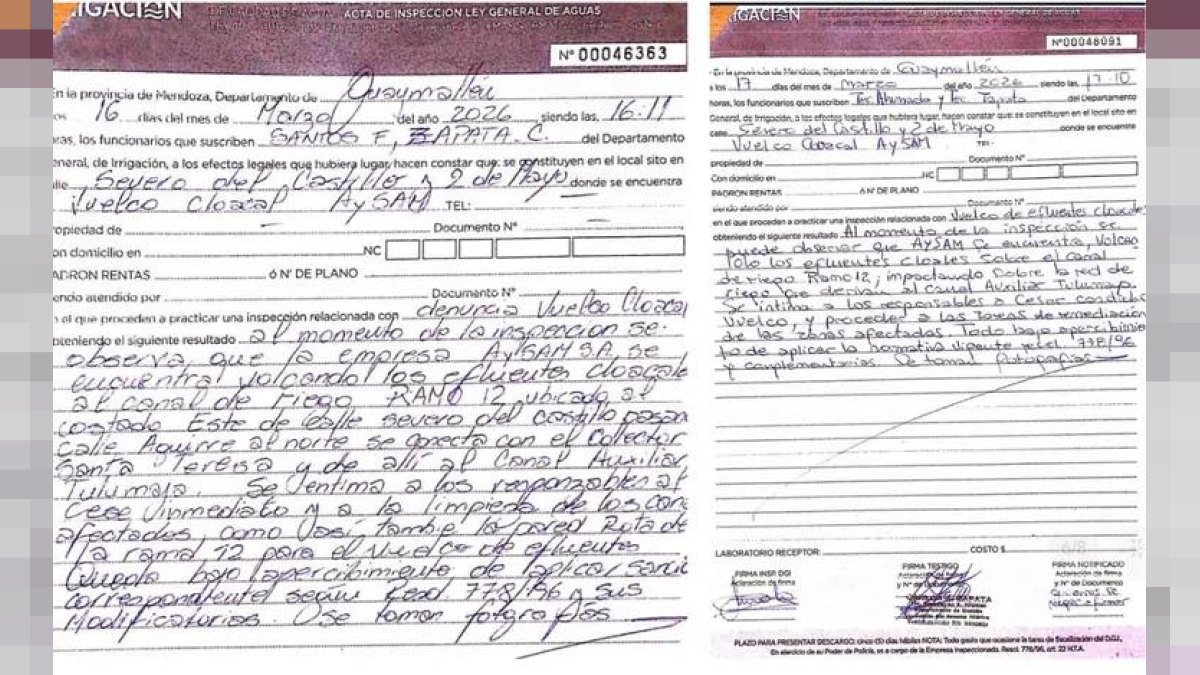 IGACIÓN
ACTA DE INSPECCION LEY GENERAL DE AGUAS
N° 00046363
En la provincia de Mendoza, Departamento de Guaymallén
os 16 días del mes de Marzo del año 2026 siendo las, 16:11
oras, los funcionarios que suscriben SANTOS F, ZAPATA C. del Departamento
General, de Irrigación, a los efectos legales que hubiera lugar, hacen constar que: se constituyen en el local sito en
lle Severo del Castillo y 2 de Mayo donde se encuentra
Vuelco Cloacal AySAM TEL:
opiedad de Documento N°
on domicilio en NC
ADRON RENTAS ó N° DE PLANO
endo atendido por Documento N°
n el que proceden a practicar una inspección relacionada con denuncia Vuelco Cloacal
obteniendo el siguiente resultado al momento de la inspección se
observa que la empresa AySAM S.A. se
encuentra volcando los efluentes cloacale
al canal de riego RAMO 12, ubicado al
costado Este de calle severo del castillo pasan
Calle Aguirre al norte se conecta con el Colector
Santa Teresa y de allí al Canal Auxiliar
Tulumaja. Se intima a los responzables al
Cese inmediato y a la limpieza de los can
afectados, como así, tambie la pared Rota de
la rama 12 para el Vuelco de efluentes
Queda bajo apercibimiento de aplicar sanci
correspondiente según resol 778/96 y sus
Modificatorias. Se toman fotografias
IGACIÓN
ACTA DE INSPECCION LEY GENERAL DE AGUAS
N° 00048091
En la provincia de Mendoza, Departamento de Guaymallén
a los 17 días del mes de Marzo del año 2026 siendo las, 17:10
horas, los funcionarios que suscriben Tec. Ahumada y Tec Zapata del Departamento
General, de Irrigación, a los efectos legales que hubiera lugar, hacen constar que: se constituyen en el local sito en
calle Severo del Castillo y 2 de Mayo donde se encuentra
Vuelco Cloacal AySAM TEL:
propiedad de Documento N°
Con domicilio en NC
PADRON RENTAS ó N° DE PLANO
siendo atendido por Documento N°
en el que proceden a practicar una inspección relacionada con Vuelco de efluentes cloacales
obteniendo el siguiente resultado Al momento de la inspección se
puede observar que AYSAM se encuentra, Volcan
los efluentes cloales Sobre el Canal
de riego Ramo 12; impactando Sobre la red de
riego que deriva al Canal Auxiliar Tulumaja.
Se intima a los responsables a Cesar con dicho
Vuelco, y proceder a las tareas de remediacion
de las zonas afectadas. Todo bajo apercibimie
to de aplicar la normativa vigente resol. 778/96
y complementarias. Se toman Fotografias
LABORATORIO RECEPTOR: COSTO $
FIRMA INSP. DGI
Aclaración de firma
FIRMA TESTIGO
Aclaración de firma
y N° de Documento
ZAPATA
FIRMA NOTIFICADO
Aclaración de firma
y N° de Documento
PLAZO PARA PRESENTAR DESCARGO: cinco (5) días hábiles NOTA: Todo gasto que ocasione la tarea de fiscalización del D.G.I.,
En ejercicio de su Poder de Policía, es a cargo de la Empresa Inspeccionada. Resol. 778/96, art. 22 H.T.A.